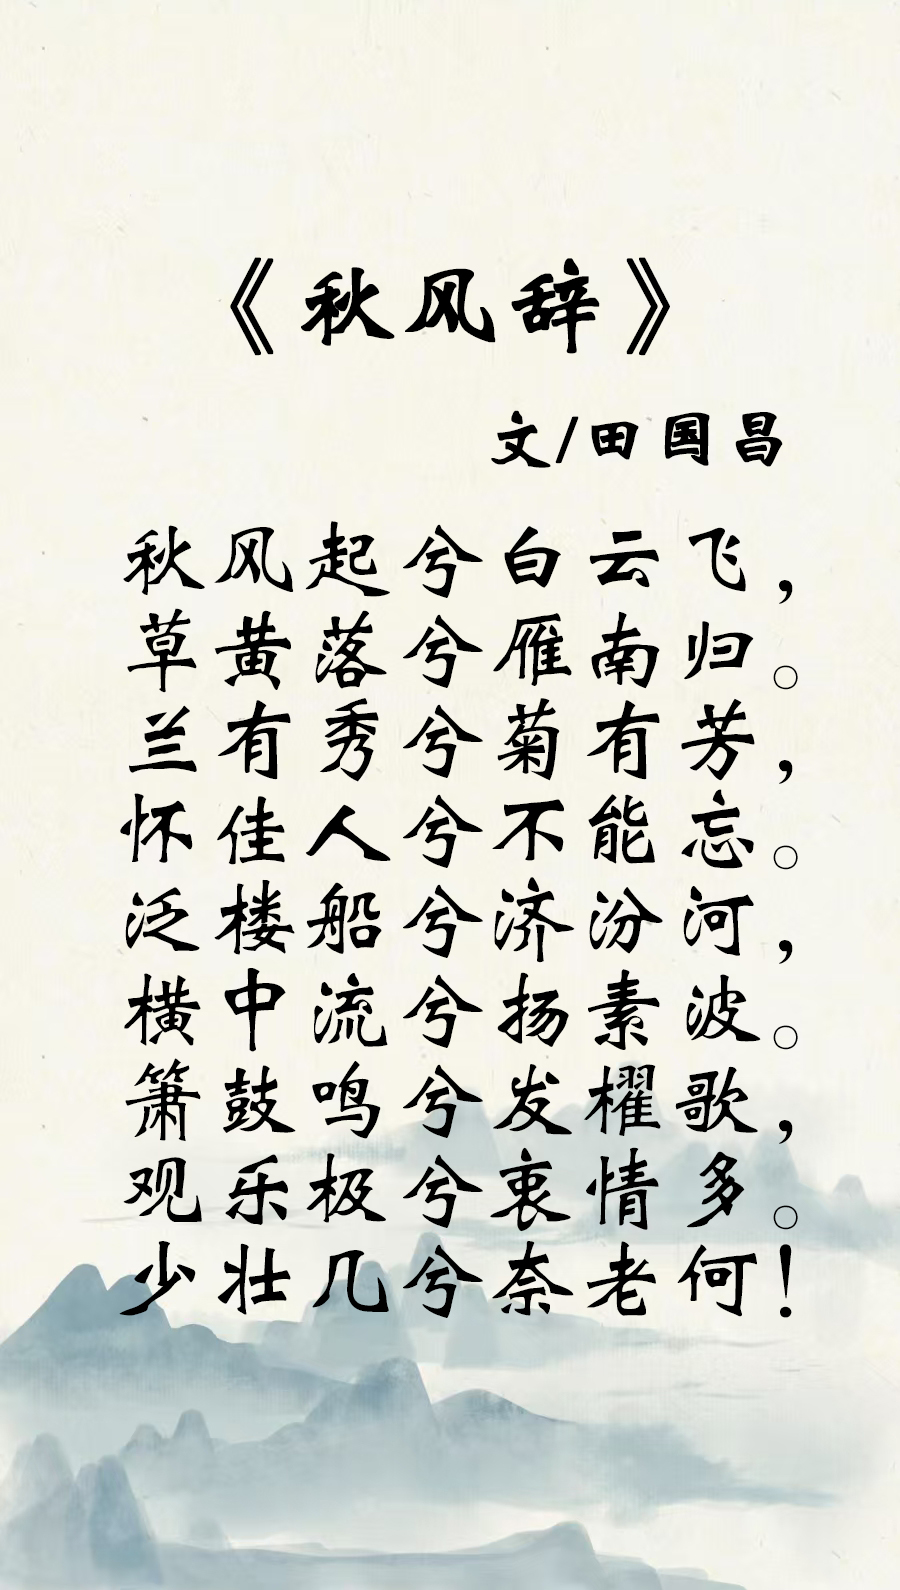 《秋风辞》
文/田国昌
秋风起兮白云飞，
草黄落兮雁南归。
兰有秀兮菊有芳，
怀佳人兮不能忘。
泛楼船兮济汾河，
横中流兮扬素波。
箫鼓鸣兮发櫂歌，
观乐极兮衷情多。
少壮几兮奈老何！